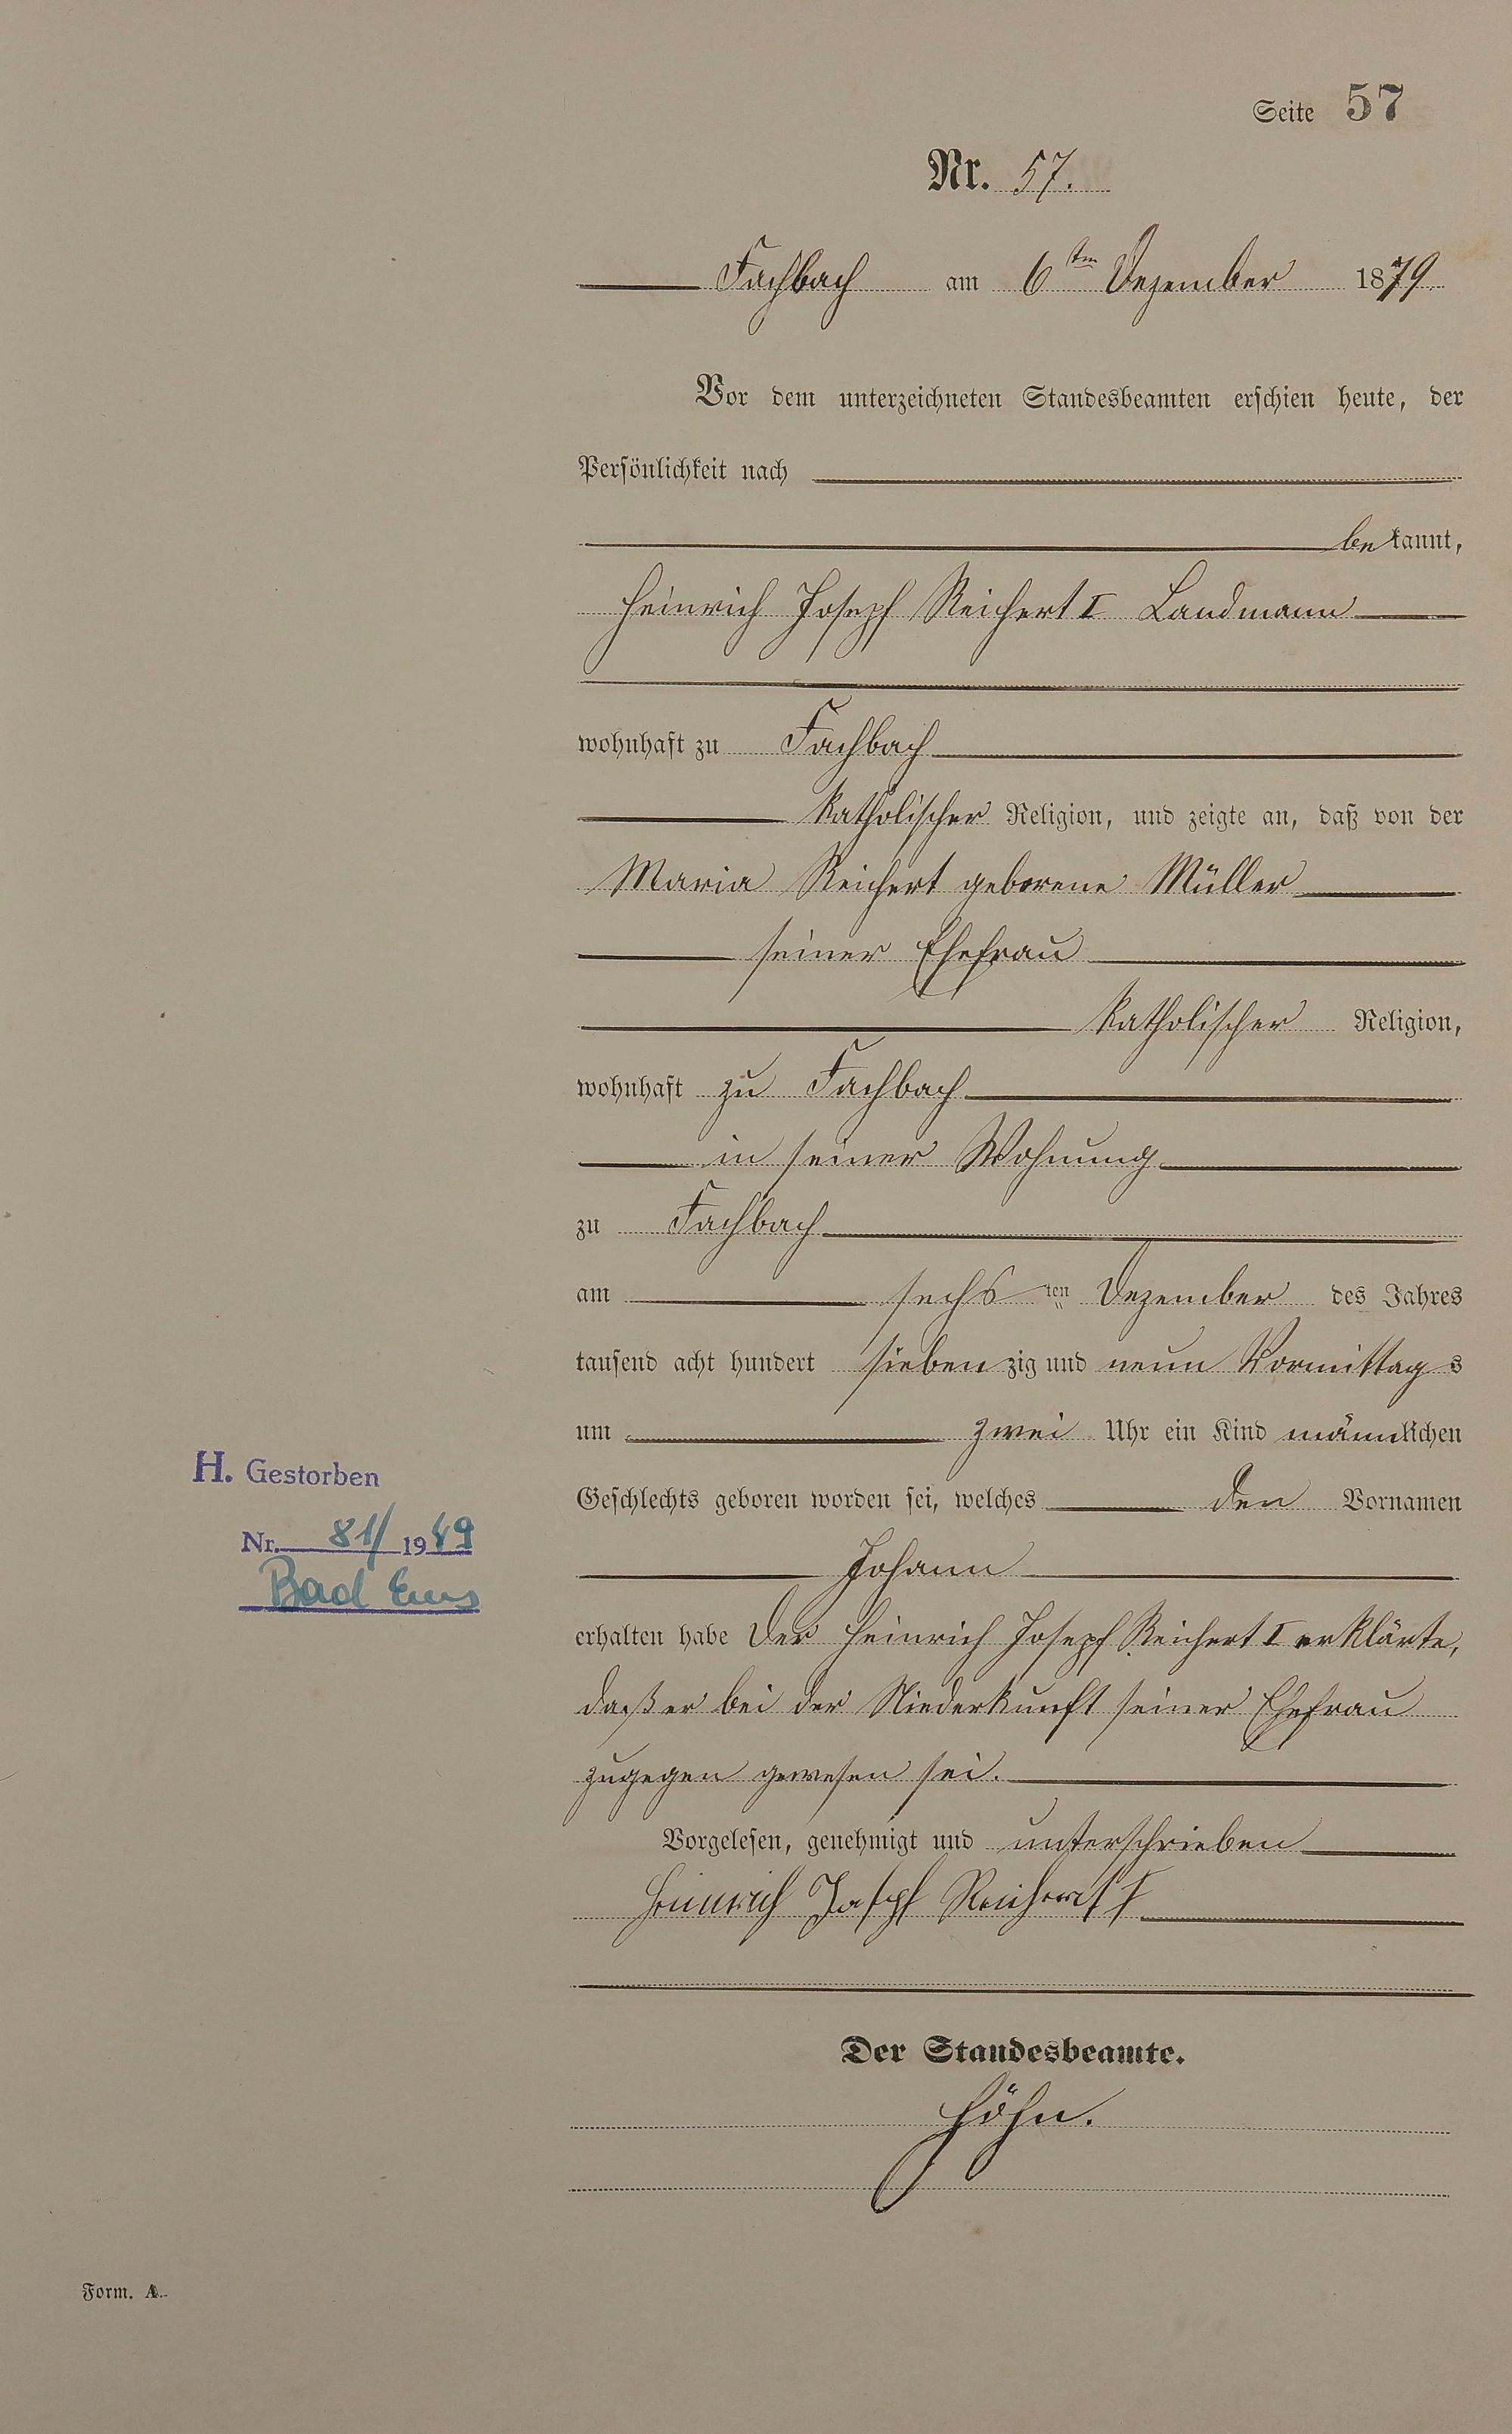 Seite 57
Nr. 57.
Fachbach am 6ten Dezember 1879.
Vor dem unterzeichneten Standesbeamten erschien heute, der
Persönlichkeit nach
bekannt,
Heinrich Joseph Reichert I Landmann
wohnhaft zu Fachbach
katholischer Religion, und zeigte an, daß von der
Maria Reichert geborene Müller
seiner Ehefrau
katholischer Religion,
wohnhaft zu Fachbach
in seiner Wohnung
zu Fachbach
am sechsten Dezember des Jahres
tausend acht hundert siebenzig und neun Vormittags
um zwei Uhr ein Kind männlichen
Geschlechts geboren worden sei, welches den Vornamen
Johann
erhalten habe Der Heinrich Joseph Reichert I erklärte,
daß er bei der Niederkunft seiner Ehefrau
zugegen gewesen sei.
Vorgelesen, genehmigt und unterschrieben
Heinrich Joseph Reichert I
Der Standesbeamte.
Höhn.
H. Gestorben
Nr. 81/1949
Bad Ems
Form. A.